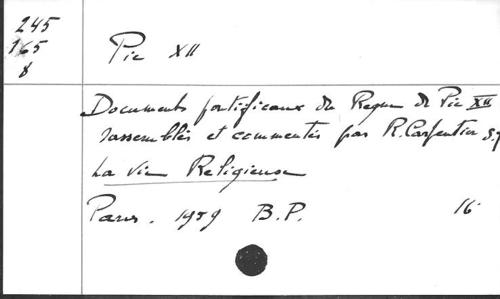 245
165
8
Pie XII
Documents pontificaux du Regne de Pie XII
rassemblés et commentés par R. Carpentier s.j
La vie Religieuse
Paris. 1959 B.P. 16